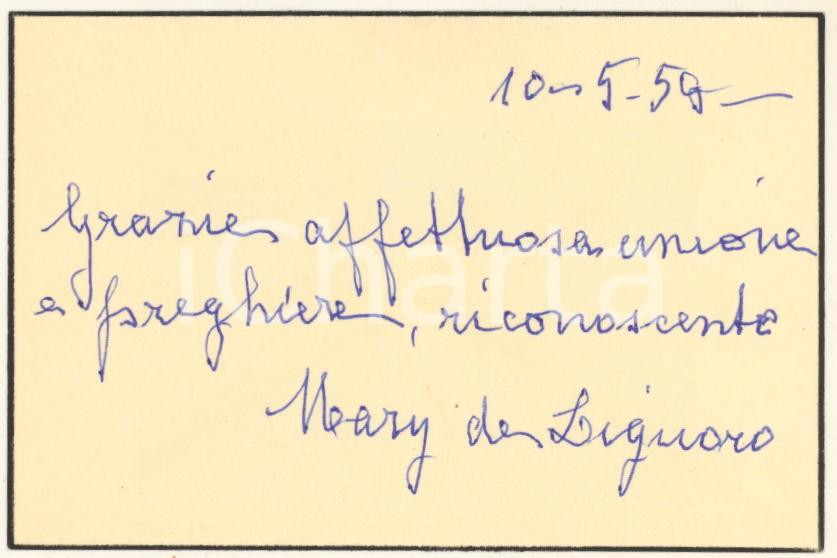 10-5-59-
Grazie affettuosa unione
e preghiere, riconoscente
Mary de Liguoro
iCharta